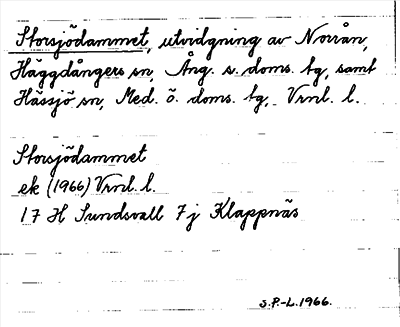 Storsjödammet, utvidgning av Norrån,
Häggdångers sn, Ång. s. doms. tg, samt
Hässjö sn, Med. ö. doms. tg, Vrnl. l.
Storsjödammet
ek (1966) Vrnl. l.
17 H Sundsvall 7j Klappnäs
S.P.-L. 1966.